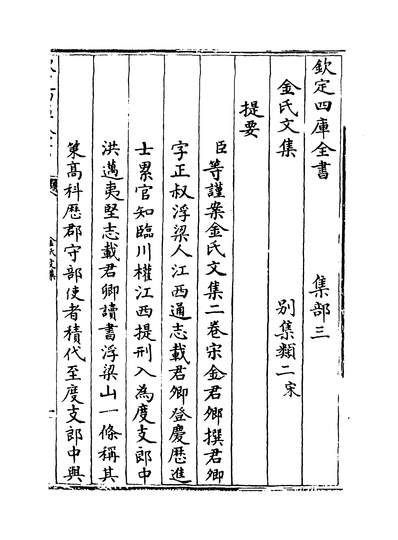 欽定四庫全書　集部三
金氏文集　別集類二宋
提要
臣等謹案金氏文集二卷宋金君卿撰君卿
字正叔浮梁人江西通志載君卿登慶歷進
士累官知臨川權江西提刑入為度支郎中
洪邁夷堅志載君卿讀書浮梁山一條稱其
策高科歷郡守部使者積代至度支郎中與
金氏文集